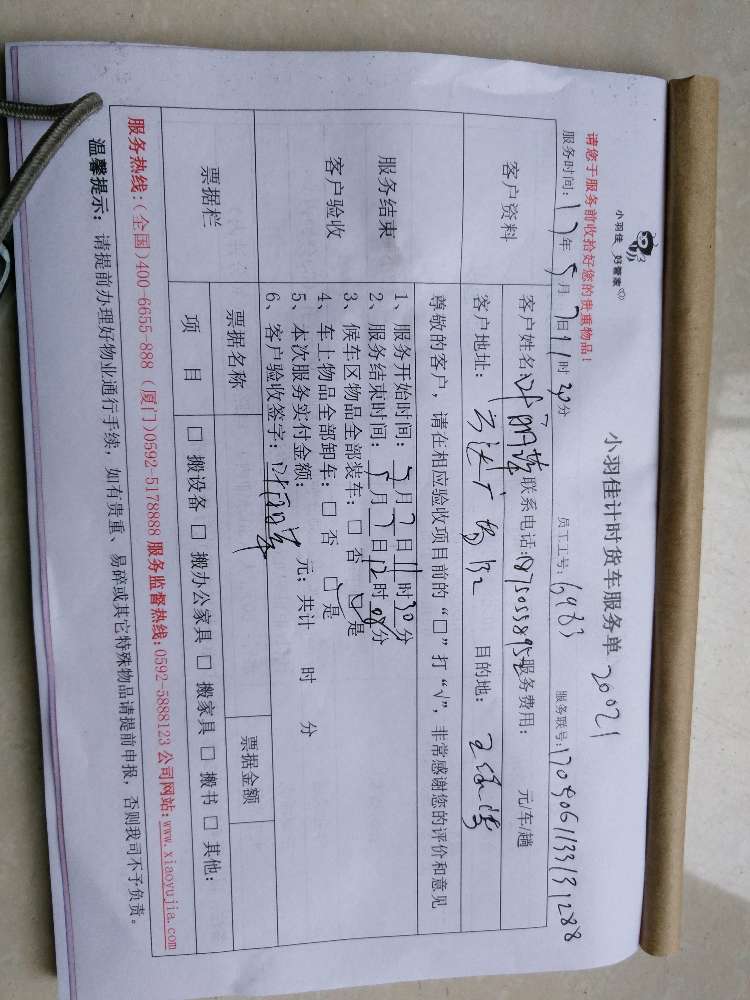 小羽佳 好管家
小羽佳计时货车服务单 20021
请您于服务前收拾好您的贵重物品!
服务时间: 17年5月7日11时30分 员工工号: 6983 服务联号:
客户资料
客户姓名: 联系电话: 服务费用: 元/车/趟
客户地址: 目的地:
服务结束
客户验收
尊敬的客户,请在相应验收项目前的“□”打“√”,非常感谢您的评价和意见
1、服务开始时间: 5月7日11时30分
2、服务结束时间: 5月7日12时08分
3、候车区物品全部装车: □ 否 □ 是
4、车上物品全部卸车: □ 否 □ 是
5、本次服务实付金额: 元; 共计 时 分
6、客户验收签字:
票据栏
票据名称 票据金额
项 目 □ 搬设备 □ 搬办公家具 □ 搬家具 □ 搬书 □ 其他:
服务热线:(全国)400-6655-888 (厦门)0592-5178888 服务监督热线:0592-5888123 公司网站:www.xiaoyujia.com
温馨提示: 请提前办理好物业通行手续,如有贵重、易碎或其它特殊物品请提前申报,否则我司不予负责。